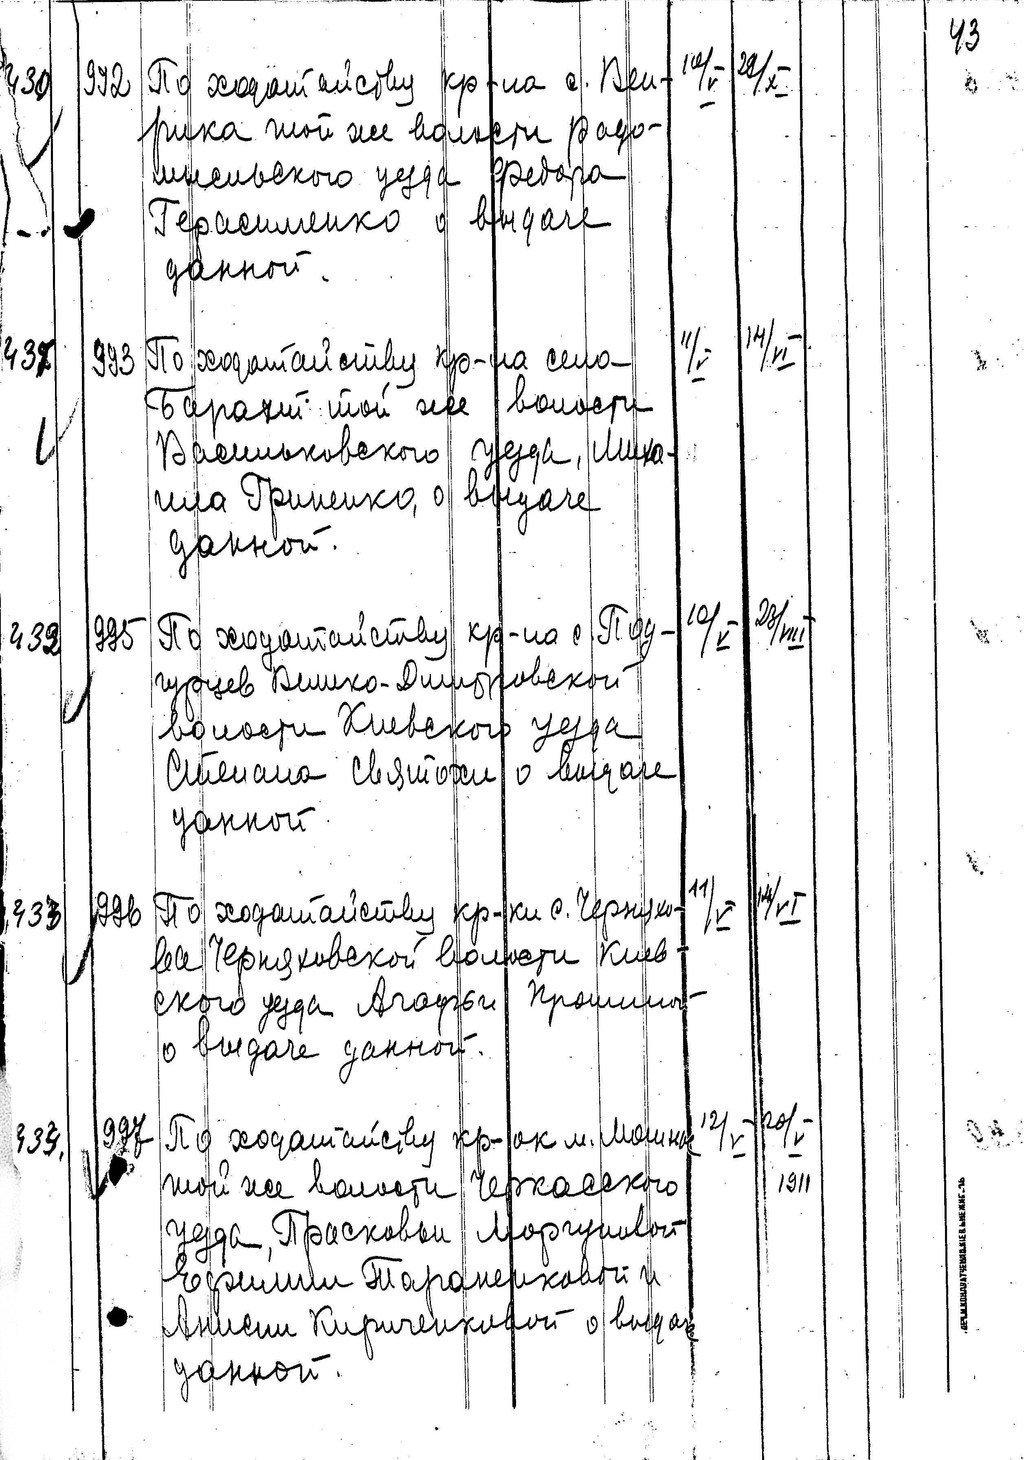 43
430 992 По ходатайству кр-на с. Веп- 10/V 29/XI
рика той же волости Радо-
мысльского уезда Федора
Герасименко о выдаче
данной.
431 993 По ходатайству кр-на села 11/V 14/VI
Барахт той же волости
Васильковского уезда, Миха-
ила Гриненко, о выдаче
данной.
432 995 По ходатайству кр-на с. Под- 10/V 23/VIII
гурцев Велико-Дмитровской
волости Киевского уезда
Степана Святохи о выдаче
данной.
433 996 По ходатайству кр-ки с. Черняхо- 11/V 14/VI
ва Черняховской волости Киев-
ского уезда Агафьи
о выдаче данной.
434. 997 По ходатайству кр-ок м. Мошно 12/V 20/V
той же волости Черкасского 1911
уезда, Прасковьи Моргуновой
Ефимии Тараненковой и
Анисии Кириченковой о выдаче
данной.